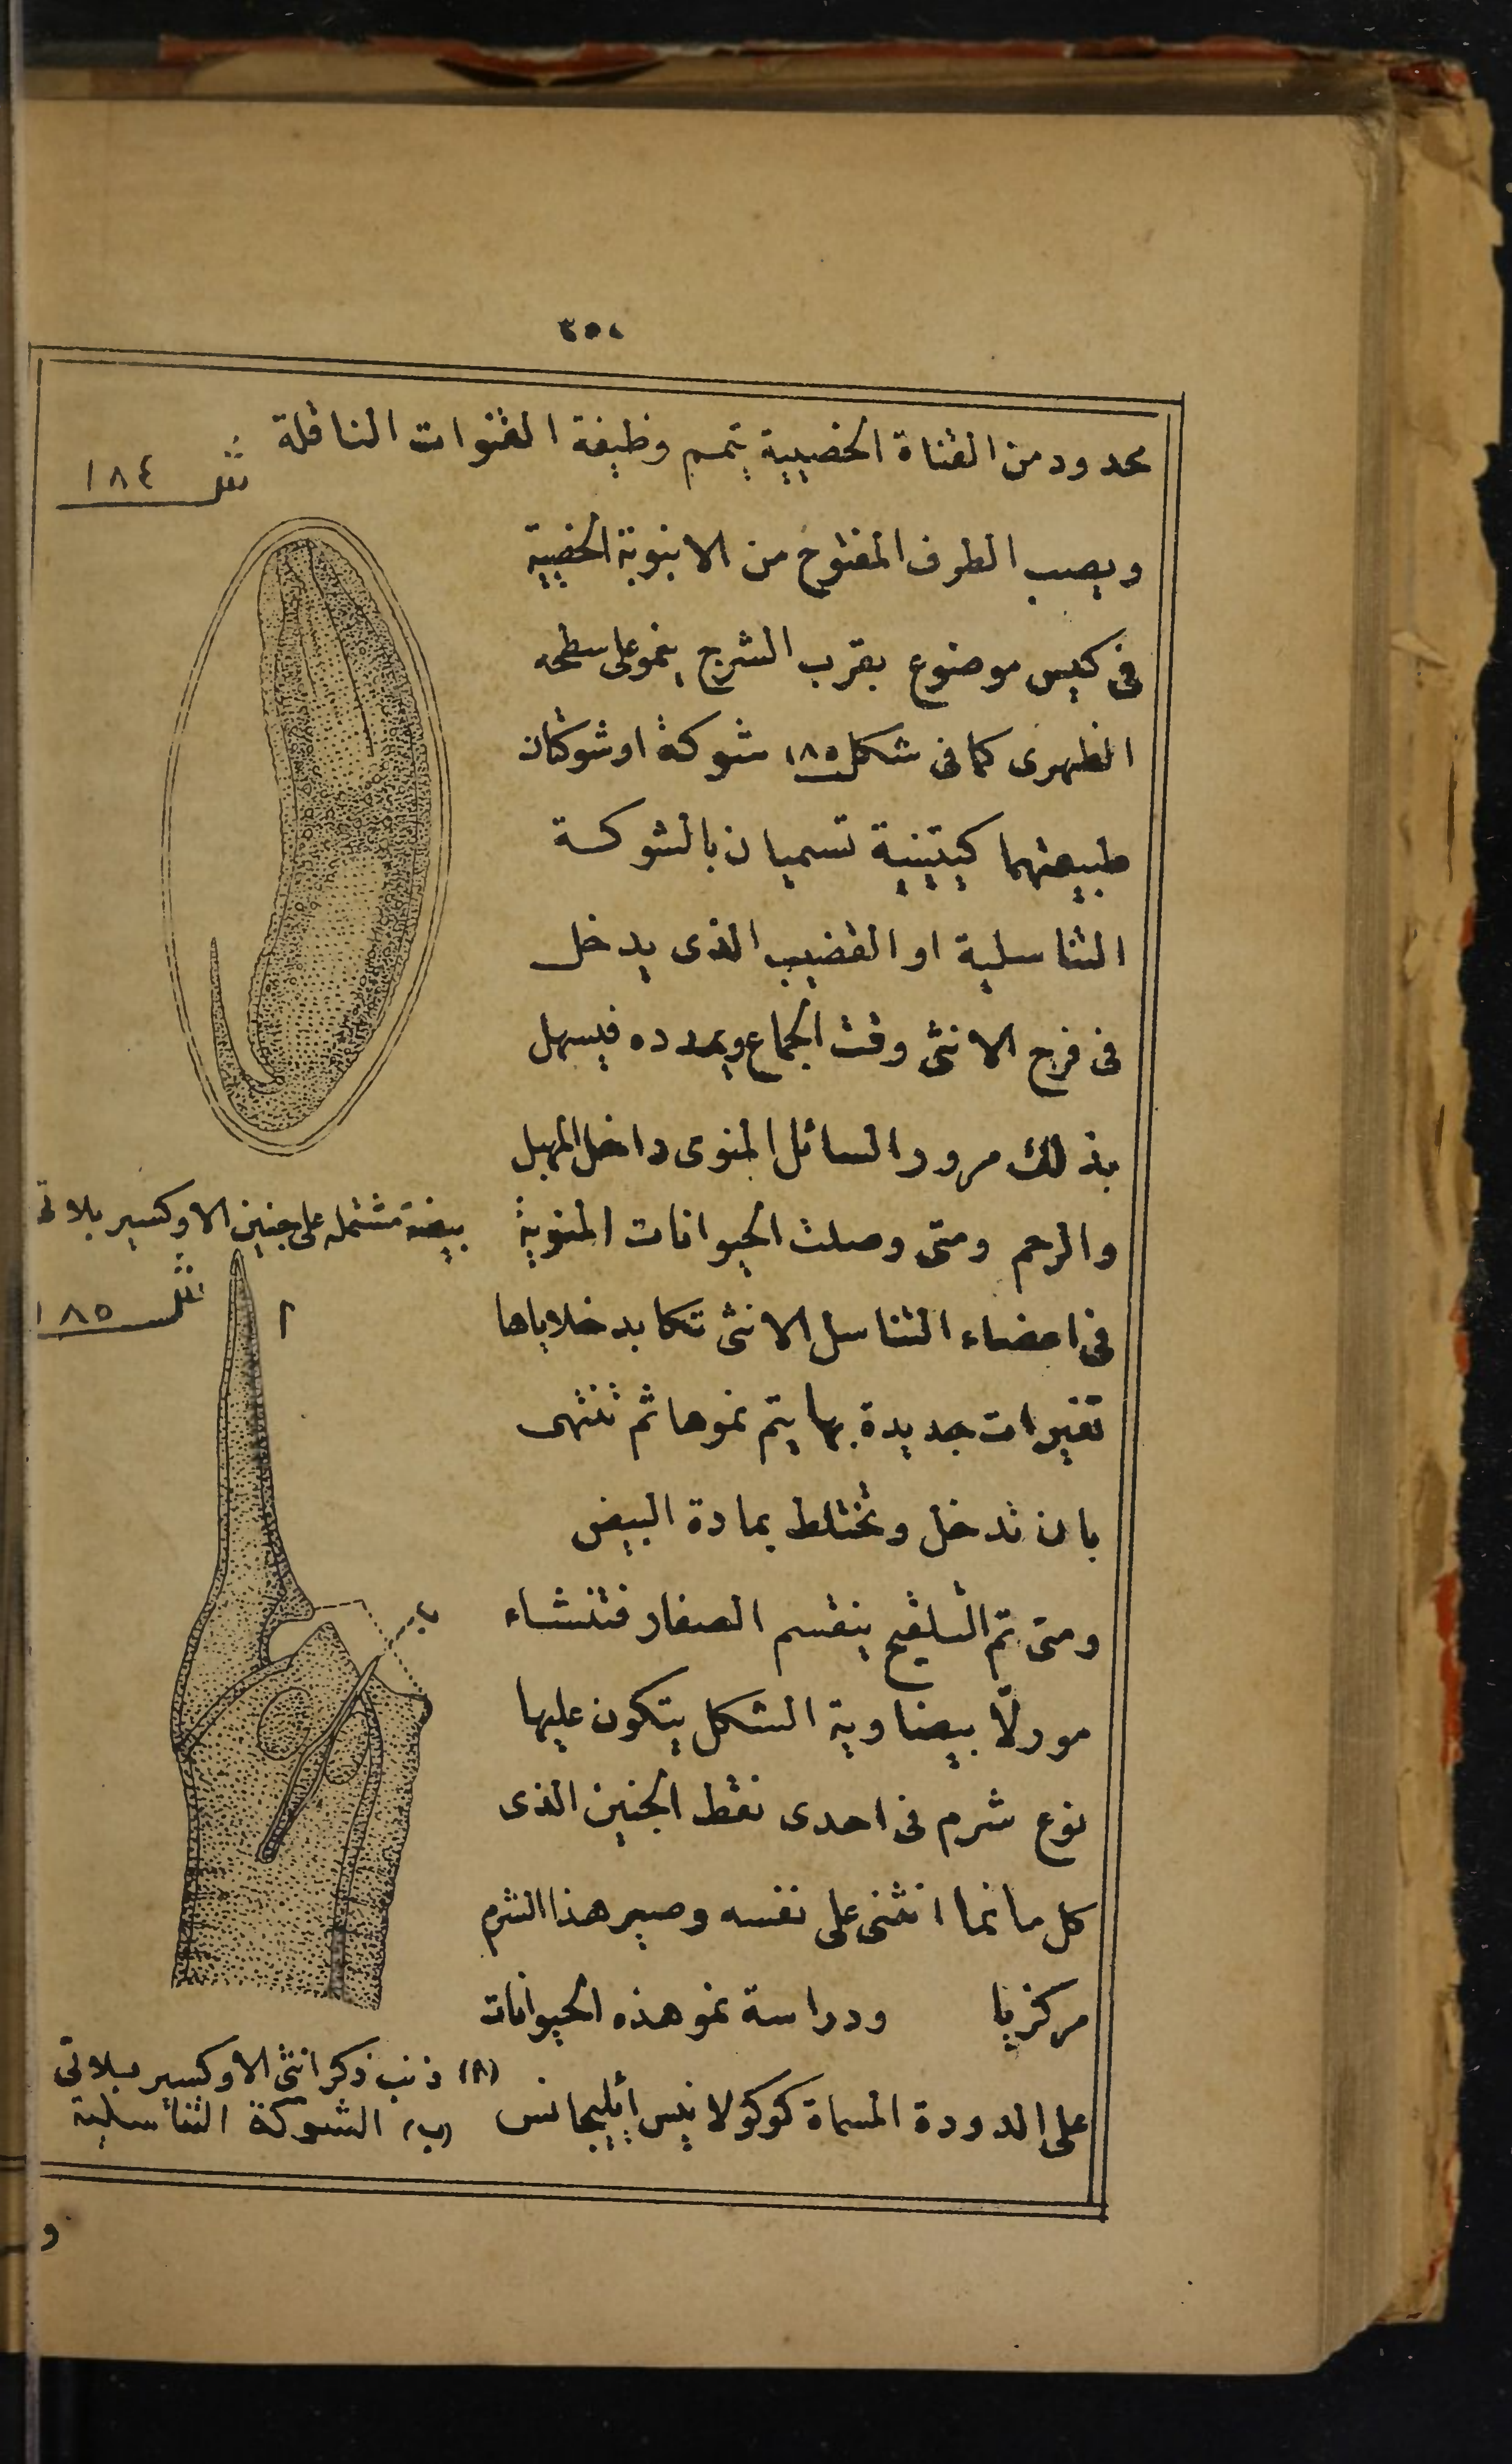 محدود من القناة الخصيية يتمم وظيفة القنوات الناقلة
شكل ١٨٤
ويصب الطرف المفتوح من الانبوبة الخصية
فى كيس موضوع بقرب الشرج ينمو على سطحه
الظهرى كما فى شكل ١٨٥ شوكة او شوكتان
طبيعتهما كيتينية تسميان بالشوكة
التناسلية او القضيب الذى يدخل
فى فرج الانثى وقت الجماع ويمدده فيسهل
بذلك مرور السائل المنوى داخل المهبل
والرحم ومتى وصلت الحيوانات المنوية
فى اعضاء التناسل الانثى تكابد خلاياها
تغيرات جديدة بها يتم نموها ثم تنتهى
بان تدخل وتختلط بمادة البيض
ومتى تم التلقيح ينقسم الصفار فتنشاء
مورلّا بيضاوية الشكل يتكون عليها
نوع شرم فى احدى نقط الجنين الذى
كل ما نما انثنى على نفسه وصير هذا الشرم
مركزيا ودراسة نمو هذه الحيوانات
على الدودة المسماة كوكولانيس ايليجانس
بيضة مشتمله على جنين الاوكسير بلاتى
شكل ١٨٥
ا
ب
(ا) ذنب ذكر انثى الاوكسير بلاتى
(ب) الشوكة التناسلية
و